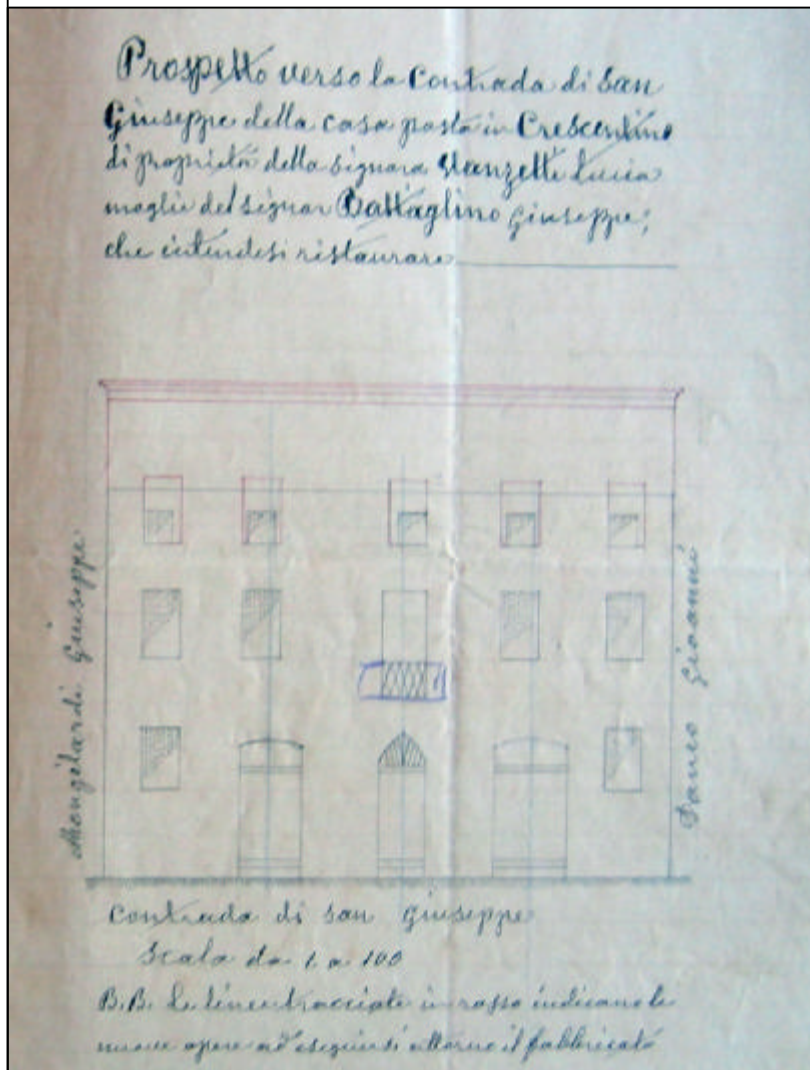 Prospetto verso la Contrada di San
Giuseppe della casa posta in Crescentino
di proprietà della signora Vanzetti Lucia
moglie del signor Battaglino Giuseppe;
che intendesi ristaurare
Mongilardi Giuseppe
Giovanni
Contrada di San Giuseppe
Scala da 1 a 100
B.B. Le linee tracciate in rosso indicano le
nuove opere ad eseguirsi attorno il fabbricato